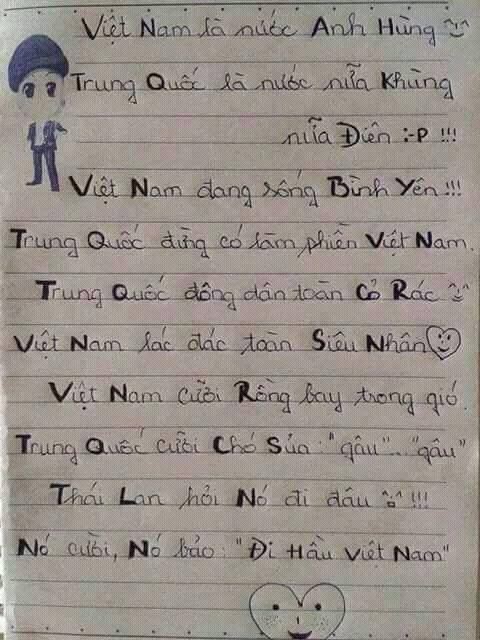 Việt Nam là nước Anh Hùng
Trung Quốc là nước nửa Khùng
nửa Điên :-P !!!
Việt Nam đang sống Bình Yên !!!
Trung Quốc đừng có làm phiền Việt Nam.
Trung Quốc đông dân toàn Cỏ Rác ^^
Việt Nam lác đác toàn Siêu Nhân
Việt Nam cưỡi Rồng bay trong gió.
Trung Quốc cưỡi Chó Sủa: "gâu"... "gâu"
Thái Lan hỏi Nó đi đâu ^o^ !!!
Nó cười, Nó bảo: "Đi Hầu Việt Nam"